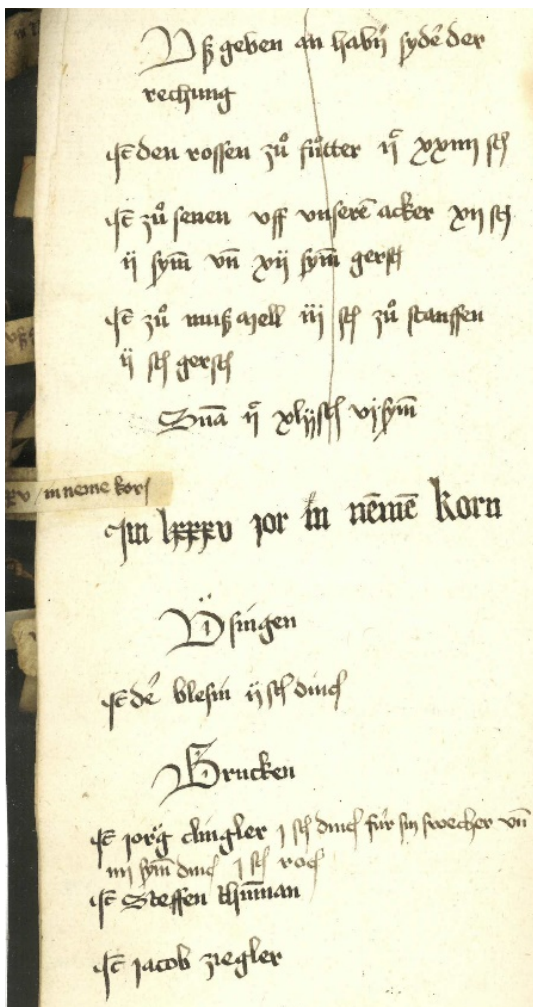 Vß geben an habern syder der
rechung
Jt den rossen zů fůtter ij c xxiiii sch
Jt zů senen vff vnserē acker xii sch
ij sym vn̄ xij sym gersch
Jt zů muß mell iii sch zů stanffen
ij sch gersch
Sūa ij c xlij sch vj sym
xv in neme korn
Jm lxxxv jor in nēmē korn
Vsingen
Jt dē blesin ij sch dinck
Brucken
Jt jörg clingler j sch dinck für sin swecher vn̄
iiii sym dinck j sch rock
Jt Steffen
Jt jacob ziegler